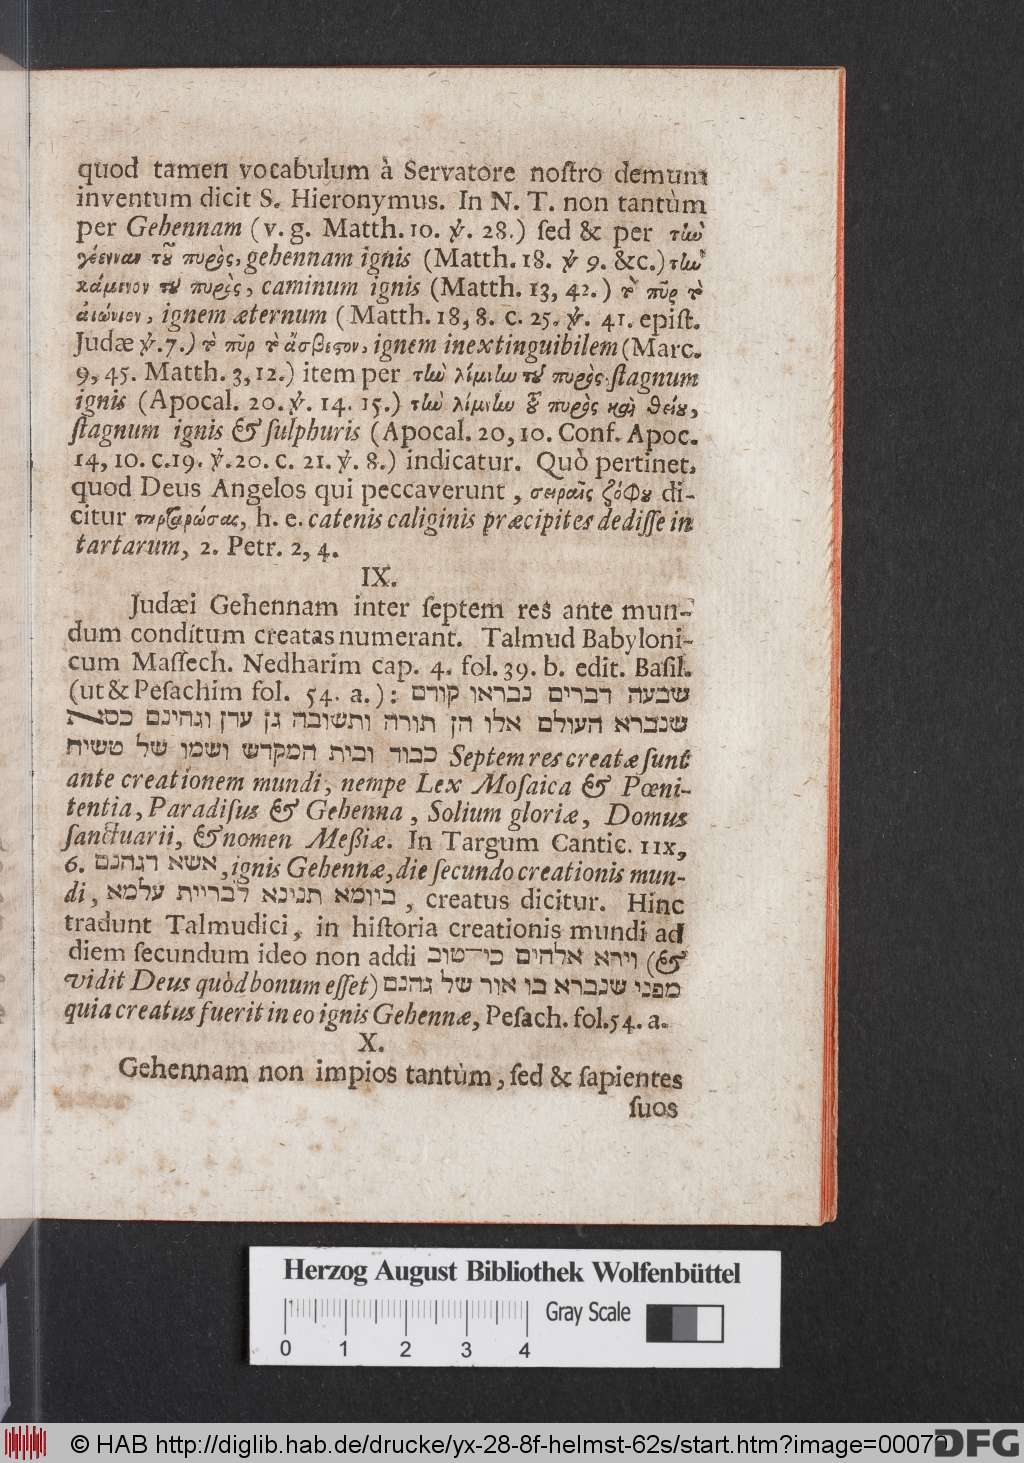 quod tamen vocabulum à Servatore noſtro demum
inventum dicit S. Hieronymus. In N. T. non tantùm
per Gehennam (v. g. Matth. 10. ℣. 28.) ſed & per τὴν
γέενναν τοῦ πυρὸς, gehennam ignis (Matth. 18. ℣ 9. &c.) τὴν
κάμινον τοῦ πυρὸς, caminum ignis (Matth. 13, 42.) τὸ πῦρ τὸ
αἰώνιον, ignem æternum (Matth. 18, 8. c. 25. ℣. 41. epiſt.
Judæ ℣. 7.) τὸ πῦρ τὸ ἄσβεστον, ignem inextinguibilem (Marc.
9, 45. Matth. 3, 12.) item per τὴν λίμνην τοῦ πυρὸς, ſtagnum
ignis (Apocal. 20. ℣. 14. 15.) τὴν λίμνην τοῦ πυρὸς καὶ θείου,
ſtagnum ignis & ſulphuris (Apocal. 20, 10. Conf. Apoc.
14, 10. c. 19. ℣. 20. c. 21. ℣. 8.) indicatur. Quò pertinet,
quod Deus Angelos qui peccaverunt, σειραῖς ζόφου di-
citur ταρταρώσας, h. e. catenis caliginis præcipites dediſſe in
tartarum, 2. Petr. 2, 4.
IX.
Judæi Gehennam inter ſeptem res ante mun-
dum conditum creatas numerant. Talmud Babyloni-
cum Maſſech. Nedharim cap. 4. fol. 39. b. edit. Baſil.
(ut & Peſachim fol. 54. a.): שבעה דברים נבראו קודם
שנברא העולם אלו הן תורה ותשובה גן עדן וגהינם כסא
כבוד ובית המקדש ושמו של משיח Septem res creatæ ſunt
ante creationem mundi, nempe Lex Moſaica & Pœni-
tentia, Paradiſus & Gehenna, Solium gloriæ, Domus
ſanctuarii, & nomen Meßiæ. In Targum Cantic. IIX,
6. אשא דגהנם, ignis Gehennæ, die ſecundo creationis mun-
di, ביומא תנינא לבריית עלמא, creatus dicitur. Hinc
tradunt Talmudici, in hiſtoria creationis mundi ad
diem ſecundum ideo non addi וירא אלהים כי־טוב (&
vidit Deus quòd bonum eſſet) מפני שנברא בו אור של גהנם
quia creatus fuerit in eo ignis Gehennæ, Peſach. fol. 54. a.
X.
Gehennam non impios tantùm, ſed & ſapientes
ſuos
Herzog August Bibliothek Wolfenbüttel
0 1 2 3 4 Gray Scale
© HAB http://diglib.hab.de/drucke/yx-28-8f-helmst-62s/start.htm?image=00079
DFG